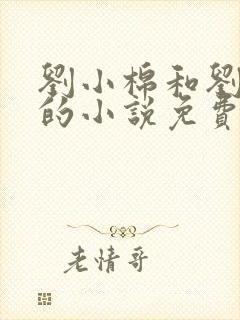 劉小棉和劉
的小說免費
老情哥